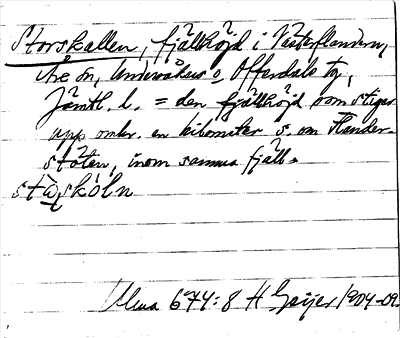 Storskallen, fjällhöjd i Västerflandern,
Åre sn, Undersåkers o. Offerdals tg,
Jämtl. l. = den fjällhöjd som stiger
upp omkr. en kilometer s. om Flander-
stöten, inom samma fjäll.
stȧskóln
Ulma 674:8 H Geijer 1904-09.